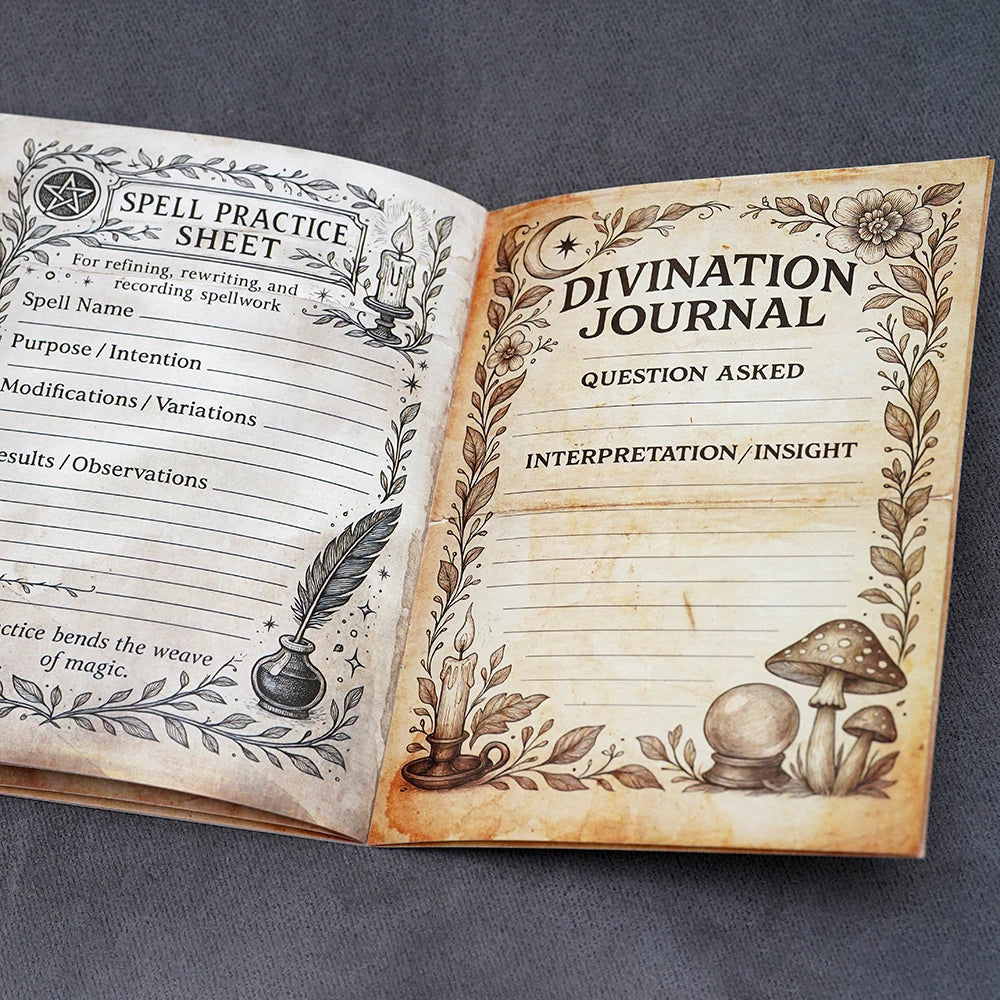 SPELL PRACTICE
SHEET
For refining, rewriting, and
recording spellwork
Spell Name
Purpose / Intention
Modifications / Variations
esults / Observations
ctice bends the weave
of magic.
DIVINATION
JOURNAL
QUESTION ASKED
INTERPRETATION/INSIGHT